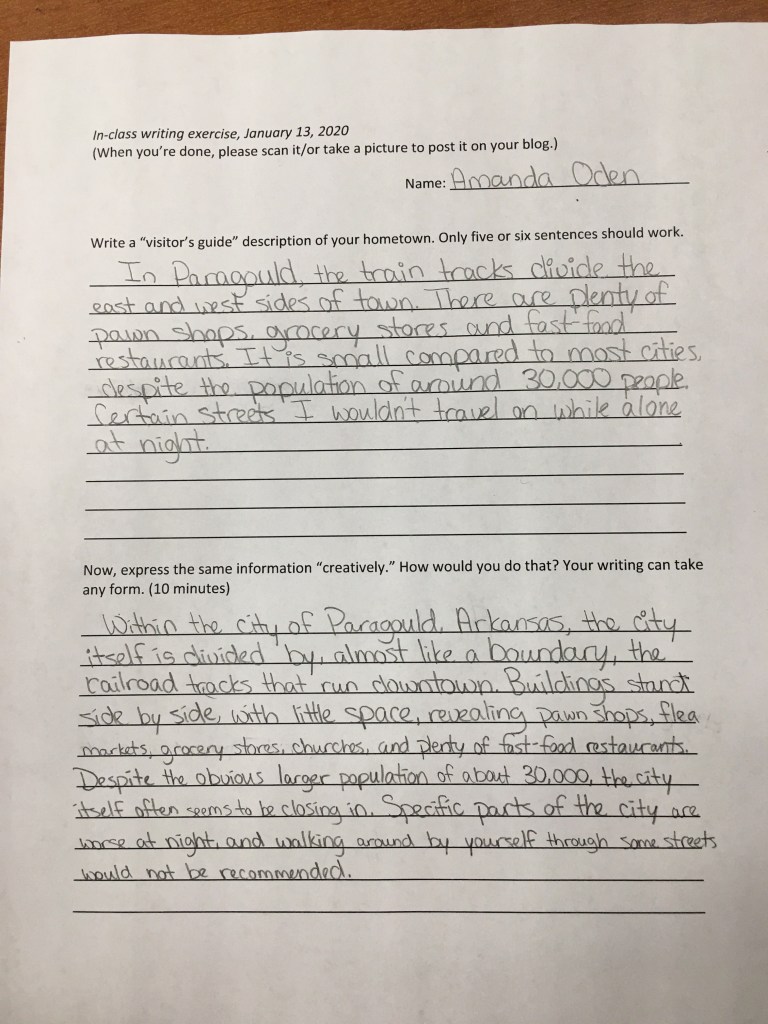 In-class writing exercise, January 13, 2020
(When you're done, please scan it/or take a picture to post it on your blog.)
Name: Amanda Oden
Write a "visitor's guide" description of your hometown. Only five or six sentences should work.
In Paragould, the train tracks divide the
east and west sides of town. There are plenty of
pawn shops, grocery stores and fast-food
restaurants. It is small compared to most cities,
despite the population of around 30,000 people.
Certain streets I wouldn't travel on while alone
at night.
Now, express the same information "creatively." How would you do that? Your writing can take
any form. (10 minutes)
Within the city of Paragould, Arkansas, the city
itself is divided by, almost like a boundary, the
railroad tracks that run downtown. Buildings stand
side by side, with little space, revealing pawn shops, flea
markets, grocery stores, churches, and plenty of fast-food restaurants.
Despite the obvious larger population of about 30,000, the city
itself often seems to be closing in. Specific parts of the city are
worse at night, and walking around by yourself through some streets
would not be recommended.